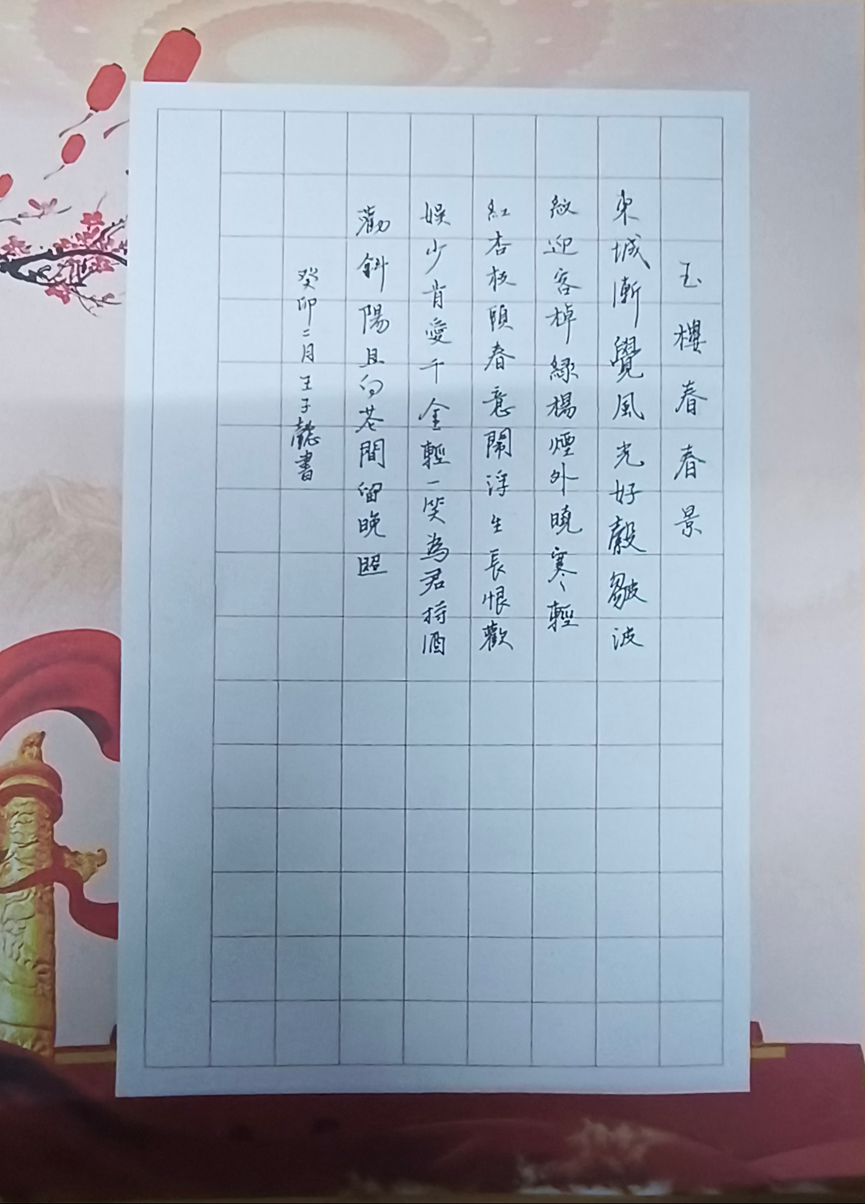 玉樓春春景
東城漸覺風光好縠皺波
紋迎客棹綠楊煙外曉寒輕
紅杏枝頭春意鬧浮生長恨歡
娛少肯愛千金輕一笑為君持酒
勸斜陽且向花間留晚照
癸卯二月王子懿書